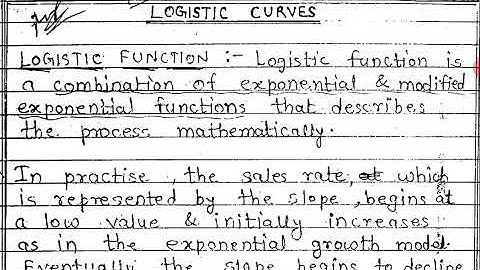 LOGISTIC CURVES
LOGISTIC FUNCTION :- Logistic function is
a combination of exponential & modified
exponential functions that describes
the process mathematically.
In practise, the sales rate, at which
is represented by the slope, begins at
a low value & initially increases
as in the exponential growth model.
Eventually the slope begins to decline